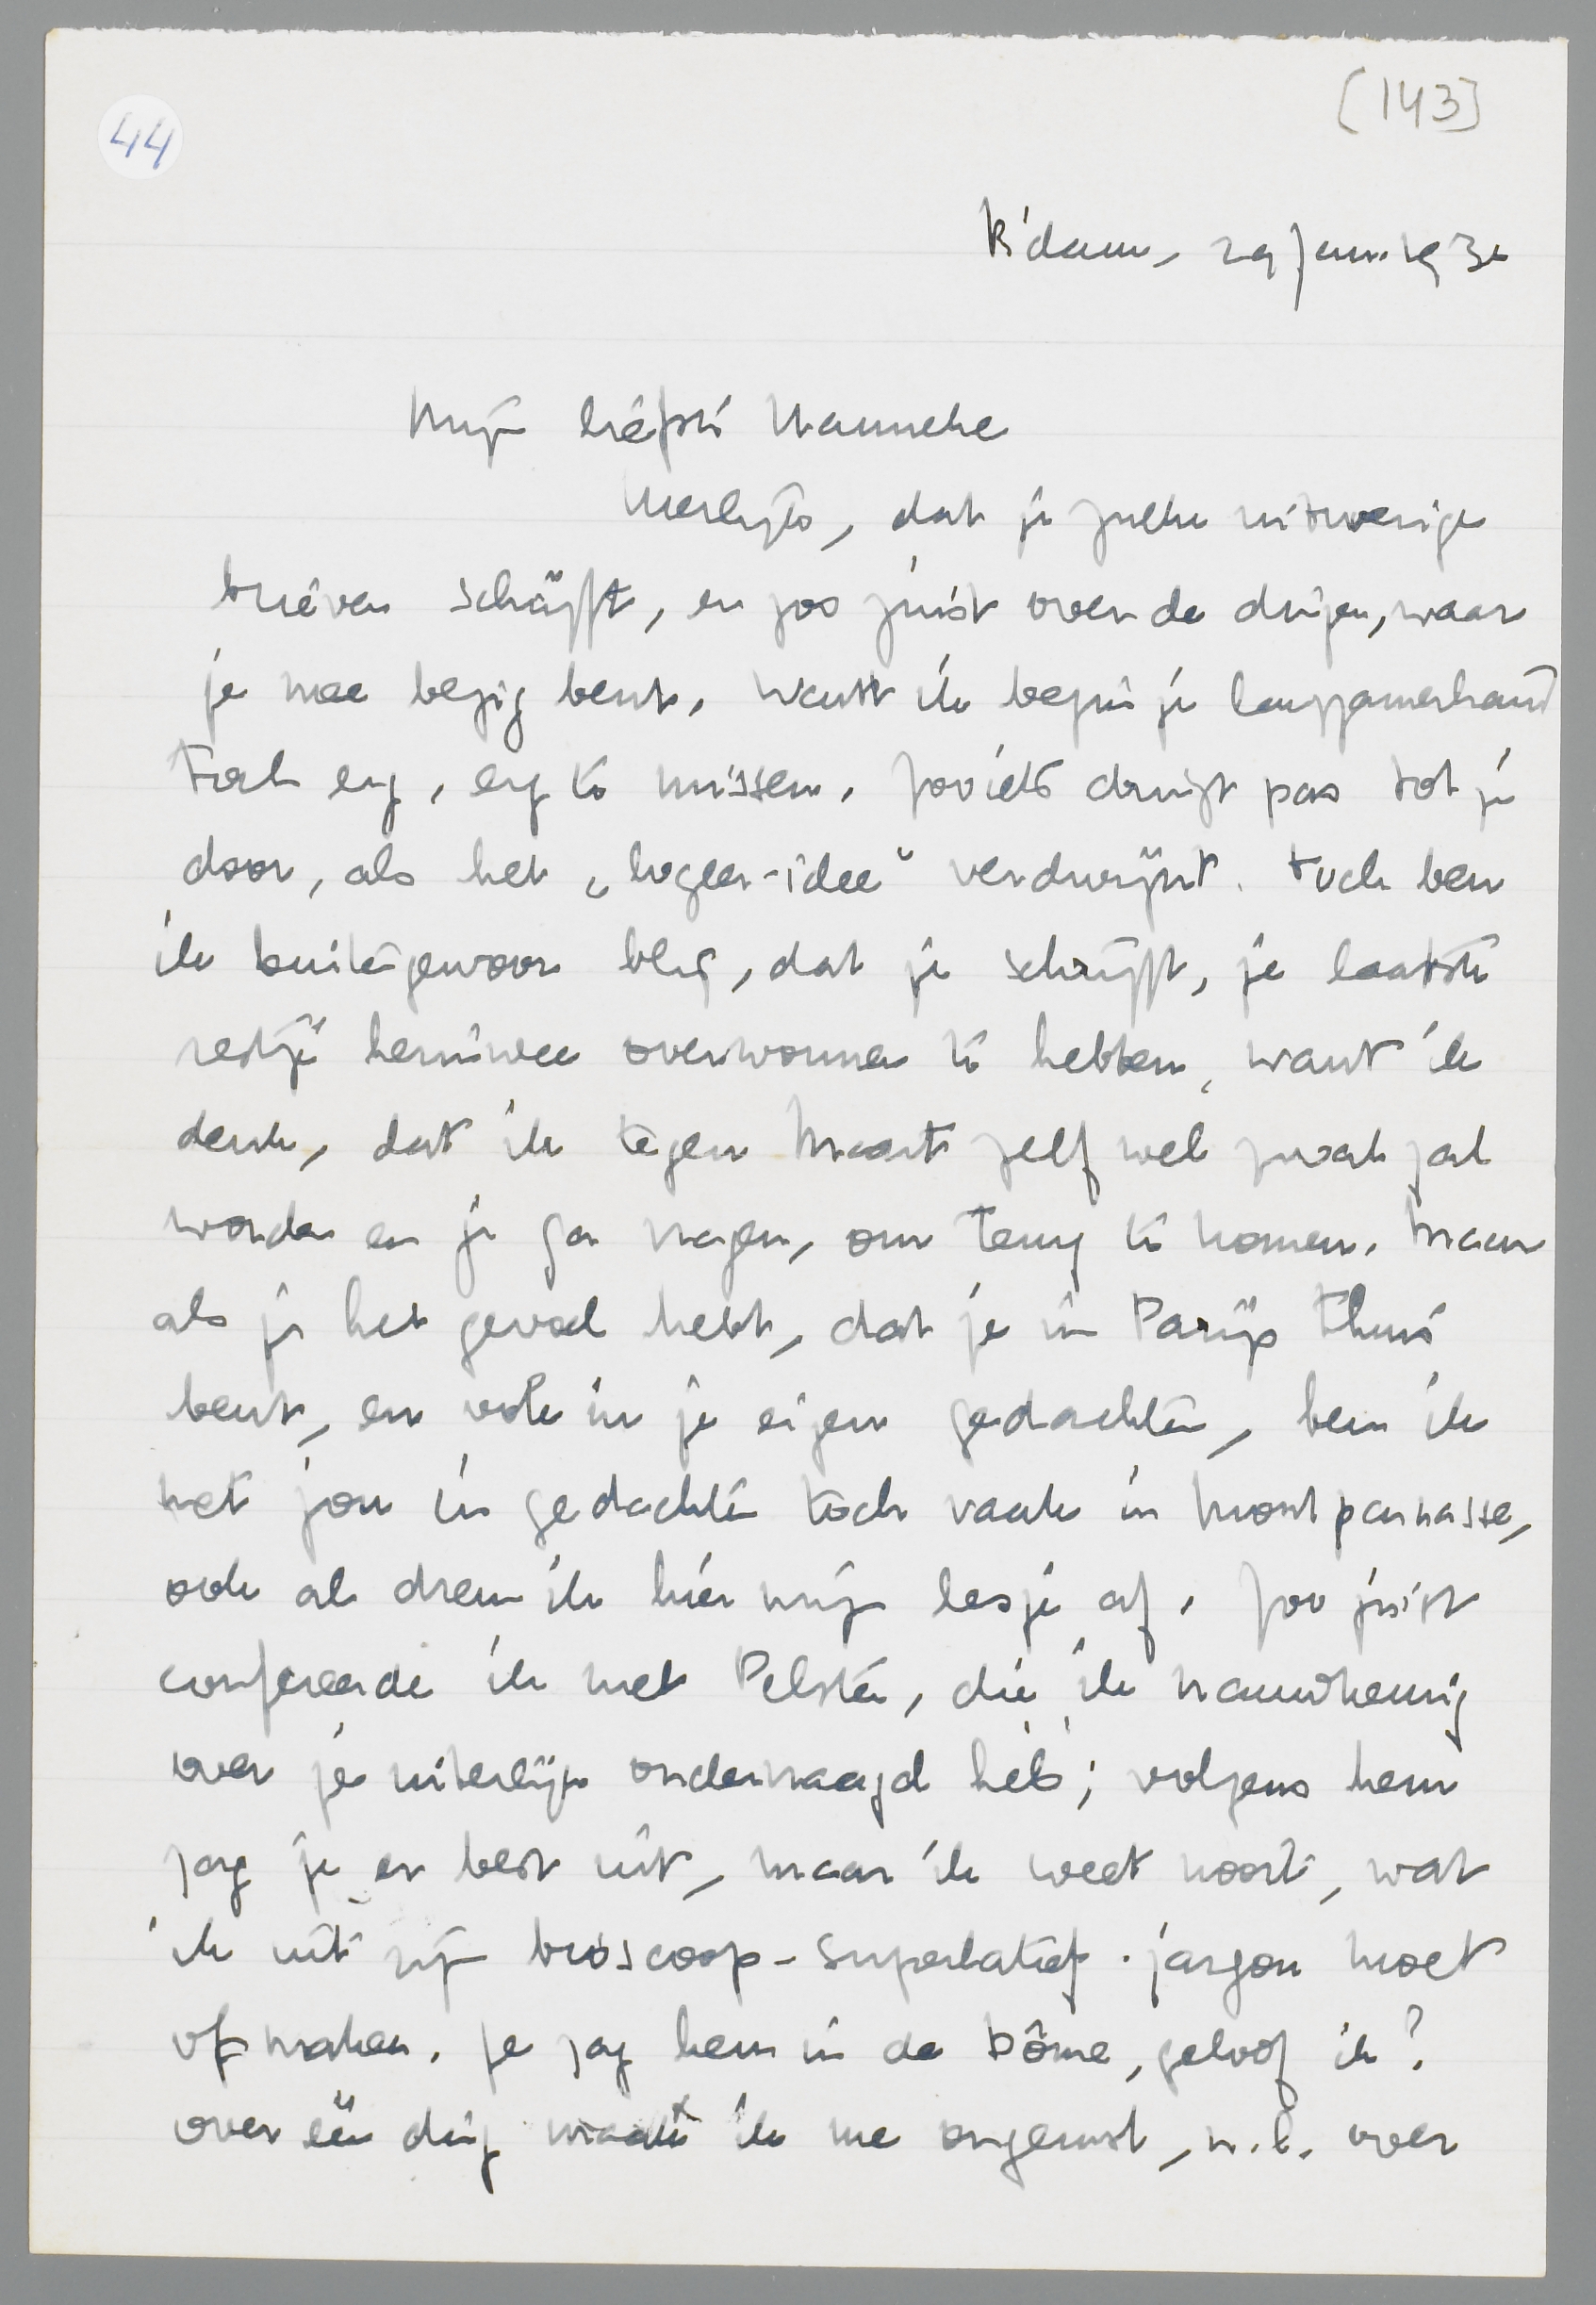 44
[143]
R'dam, 29 Jan. 1930
Mijn liefste Manneke
Heerlijk, dat je zulke uitvoerige
brieven schrijft, en zoo juist over de dingen, waar
je mee bezig bent. Want ik begin je langzamerhand
toch erg, erg te missen. Zooiets dringt pas tot je
door, als het „logeer-idee" verdwijnt. Toch ben
ik buitengewoon blij, dat je schrijft, je laatste
restje heimwee overwonnen te hebben, want ik
denk, dat ik tegen Maart zelf wel zwak zal
worden en je ga vragen, om terug te komen. Maar
als je het gevoel hebt, dat je in Parijs thuis
bent, en ook in je eigen gedachten, ben ik
met jou in gedachten toch vaak in Montparnasse,
ook al dreun ik hier mijn lesje af. Zoo juist
confereerde ik met Pelster, die ik nauwkeurig
over je uiterlijk ondervraagd heb; volgens hem
zag je er best uit, maar ik weet nooit, wat
ik uit zijn bioscoop-superlatief-jargon moet
opmaken. Je zag hem in de Dôme, geloof ik?
Over één ding maak ik me ongerust, n.l. over